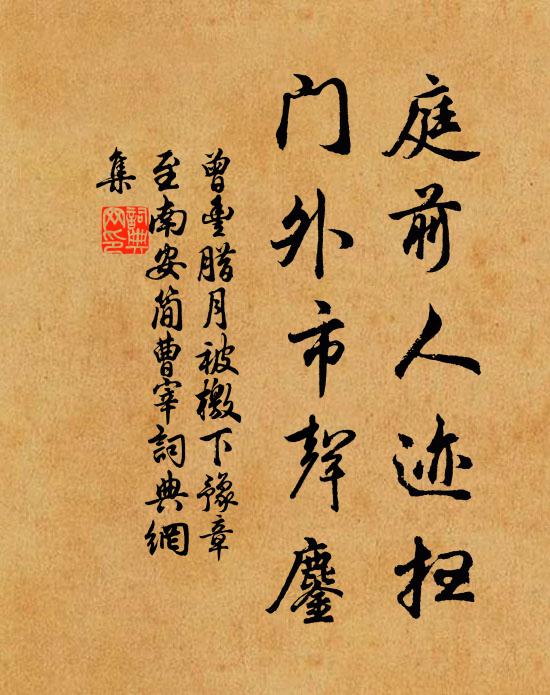 庭前人迹扫
门外市声鏖
曾豊腊月被檄下豫章
至南安简曹宰詞典網
集
詞典網印